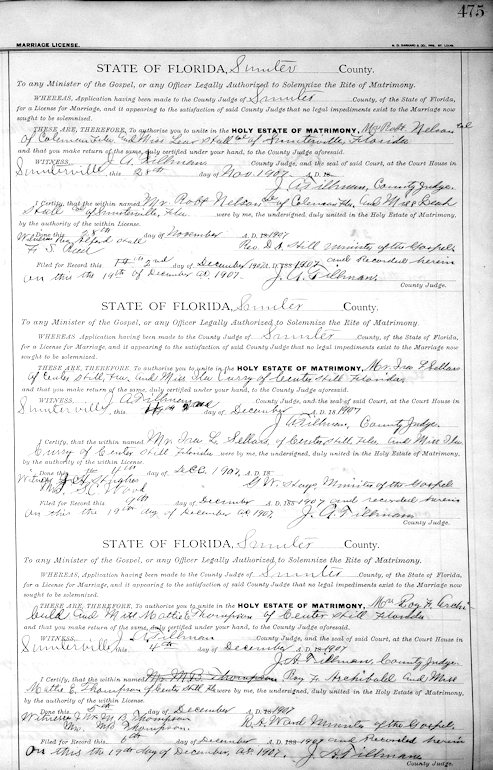 475
MARRIAGE LICENSE.
STATE OF FLORIDA, Sumter County.
To any Minister of the Gospel, or any Officer Legally Authorized to Solemnize the Rite of Matrimony.
WHEREAS, Application having been made to the County Judge of Sumter County, of the State of Florida,
for a License for Marriage, and it appearing to the satisfaction of said County Judge that no legal impediments exist to the Marriage now
sought to be solemnized.
THESE ARE, THEREFORE, To authorize you to unite in the HOLY ESTATE OF MATRIMONY, Mr Robt Nelson col
of Coleman Fla and Miss Stall col of Sumterville, Florida
and that you make return of the same, duly certified under your hand, to the County Judge aforesaid.
WITNESS, J. A. Tillman County Judge, and the seal of said Court, at the Court House in
Sumterville, this 28th day of Nov 1907 A. D. 18
J. A. Tillman, County Judge.
I Certify, that the within named Mr. Robt Nelson col of Coleman Fla, and Miss
Stall col of Sumterville, Fla. were by me, the undersigned, duly united in the Holy Estate of Matrimony,
by the authority of the within License.
Done this 28th day of November A. D. 18 1907
Witness Alford Stall Rev. D. S. Hill Minister of the Gospel
day of December 1907 A. D. 188 1907 and Recorded herein
Filed for Record this 2nd
on this the 19th of December AD, 1907. J. A. Tillman
County Judge.
STATE OF FLORIDA, Sumter County.
To any Minister of the Gospel, or any Officer Legally Authorized to Solemnize the Rite of Matrimony.
WHEREAS, Application having been made to the County Judge of Sumter County, of the State of Florida,
for a License for Marriage, and it appearing to the satisfaction of said County Judge that no legal impediments exist to the Marriage now
sought to be solemnized.
THESE ARE, THEREFORE, To authorize you to unite in the HOLY ESTATE OF MATRIMONY, Mr. Ira L Sellars
of Center Hill, Fla, and Miss Curry of Center Hill Florida
and that you make return of the same, duly certified under your hand, to the County Judge aforesaid.
WITNESS, J. A. Tillman County Judge, and the seal of said Court, at the Court House in
Sumterville, this day of December A. D. 18 1907
J. A. Tillman, County Judge.
I Certify, that the within named Mr. Ira L. Sellars, of Center Hill Fla, and Miss
Curry of Center Hill Florida were by me, the undersigned, duly united in the Holy Estate of Matrimony,
by the authority of the within License.
Done this 4th day of Dec. 1907 A. D. 18
Witness G. W. Hays, Minister of the Gospel
Mrs. S. C.
Filed for Record this 9th day of December A. D. 188 1907 and recorded herein
on this the 19th day of December AD 1907. J. A. Tillman
County Judge.
STATE OF FLORIDA, Sumter County.
To any Minister of the Gospel, or any Officer Legally Authorized to Solemnize the Rite of Matrimony.
WHEREAS, Application having been made to the County Judge of Sumter County, of the State of Florida,
for a License for Marriage, and it appearing to the satisfaction of said County Judge that no legal impediments exist to the Marriage now
sought to be solemnized.
THESE ARE, THEREFORE, To authorize you to unite in the HOLY ESTATE OF MATRIMONY, Mr. Roy F. Archi-
bald and Miss Mattie E. Thompson of Center Hill Florida
and that you make return of the same, duly certified under your hand, to the County Judge aforesaid.
WITNESS, J. A. Tillman County Judge, and the seal of said Court, at the Court House in
Sumterville this 4th day of December A. D. 18 1907
J. A. Tillman, County Judge.
I Certify, that the within named Mr. M. B. Thompson Roy F. Archibald and Miss
Mattie E. Thompson of Center Hill Fla were by me, the undersigned, duly united in the Holy Estate of Matrimony,
by the authority of the within License.
Done this 5th day of December A. D. 18 1907
Witness Mr M. B. Thompson R. A. Ward Minister of the Gospel,
Mrs. M. B. Thompson.
Filed for Record this 6th day of December A. D. 188 1907 and Recorded herein
on this the 19th day of December, AD. 1907. J. A. Tillman
County Judge.